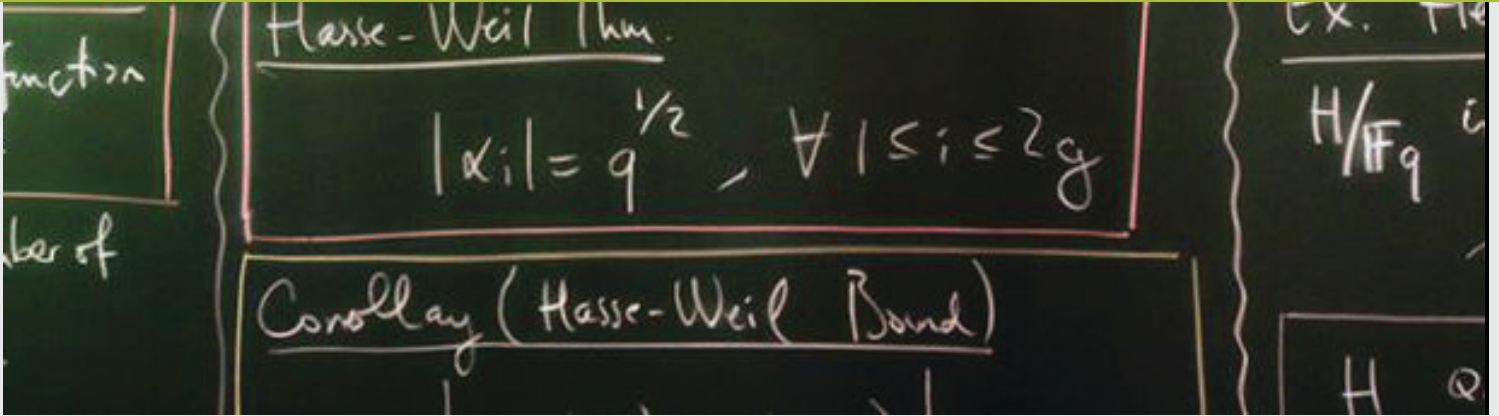 function
ber of
Hasse-Weil Thm.
|αi| = q^1/2, ∀ 1 ≤ i ≤ 2g
Corollay (Hasse-Weil Bound)
Ex.
H/𝔽q
H